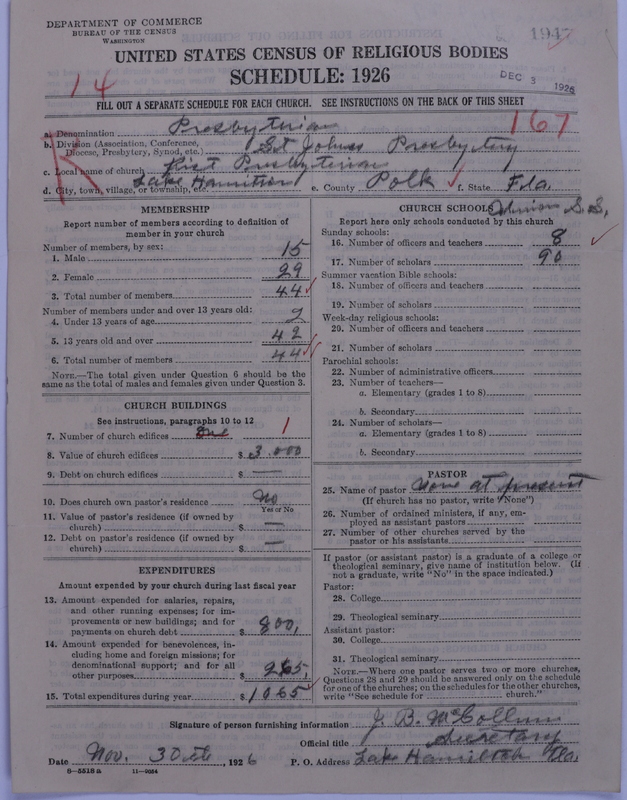 DEPARTMENT OF COMMERCE
BUREAU OF THE CENSUS
WASHINGTON
UNITED STATES CENSUS OF RELIGIOUS BODIES
SCHEDULE: 1926
14
DEC 3 1926
FILL OUT A SEPARATE SCHEDULE FOR EACH CHURCH. SEE INSTRUCTIONS ON THE BACK OF THIS SHEET
a. Denomination Presbyterian 167
b. Division (Association, Conference, Diocese, Presbytery, Synod, etc.) St Johns Presbytery
c. Local name of church First Presbyterian
d. City, town, village, or township, etc. Lake Hamilton e. County Polk f. State Fla.
MEMBERSHIP
Report number of members according to definition of member in your church
Number of members, by sex:
1. Male 15
2. Female 29
3. Total number of members 44
Number of members under and over 13 years old:
4. Under 13 years of age 2
5. 13 years old and over 42
6. Total number of members 44
NOTE.—The total given under Question 6 should be the same as the total of males and females given under Question 3.
CHURCH BUILDINGS
See instructions, paragraphs 10 to 12
7. Number of church edifices One 1
8. Value of church edifices $ 3.000
9. Debt on church edifices $ —
10. Does church own pastor's residence No
Yes or No
11. Value of pastor's residence (if owned by church) $ —
12. Debt on pastor's residence (if owned by church) $ —
EXPENDITURES
Amount expended by your church during last fiscal year
13. Amount expended for salaries, repairs, and other running expenses; for improvements or new buildings; and for payments on church debt $ 800,
14. Amount expended for benevolences, including home and foreign missions; for denominational support; and for all other purposes $ 265,
15. Total expenditures during year $ 1065
CHURCH SCHOOLS Union S.S.
Report here only schools conducted by this church
Sunday schools:
16. Number of officers and teachers 8
17. Number of scholars 90
Summer vacation Bible schools:
18. Number of officers and teachers
19. Number of scholars
Week-day religious schools:
20. Number of officers and teachers
21. Number of scholars
Parochial schools:
22. Number of administrative officers
23. Number of teachers—
a. Elementary (grades 1 to 8)
b. Secondary
24. Number of scholars—
a. Elementary (grades 1 to 8)
b. Secondary
PASTOR
25. Name of pastor None at present
(If church has no pastor, write "None")
26. Number of ordained ministers, if any, employed as assistant pastors
27. Number of other churches served by the pastor or his assistants
If pastor (or assistant pastor) is a graduate of a college or theological seminary, give name of institution below. (If not a graduate, write "No" in the space indicated.)
Pastor:
28. College
29. Theological seminary
Assistant pastor:
30. College
31. Theological seminary
NOTE.—Where one pastor serves two or more churches, Questions 28 and 29 should be answered only on the schedule for one of the churches; on the schedules for the other churches, write "See schedule for ______ church."
Signature of person furnishing information J. B. McCollum
Official title Secretary
Date Nov. 30th, 1926 P. O. Address Lake Hamilton Fla.
8—5518a 11—9054